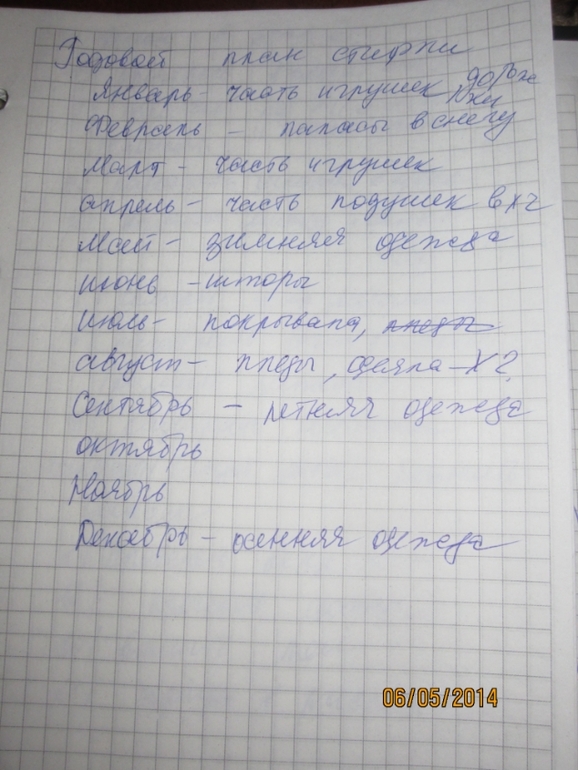 Годовой план стирки
Январь - часть игрушек, дорожки
Февраль - паласы в снегу
Март - часть игрушек
апрель - часть подушек в хг
Май - зимняя одежда
июнь - шторы
Июль - покрывала, пледы
август - пледы, одеяла - х 2
Сентябрь - летняя одежда
октябрь
Ноябрь
Декабрь - осенняя одежда
06/05/2014